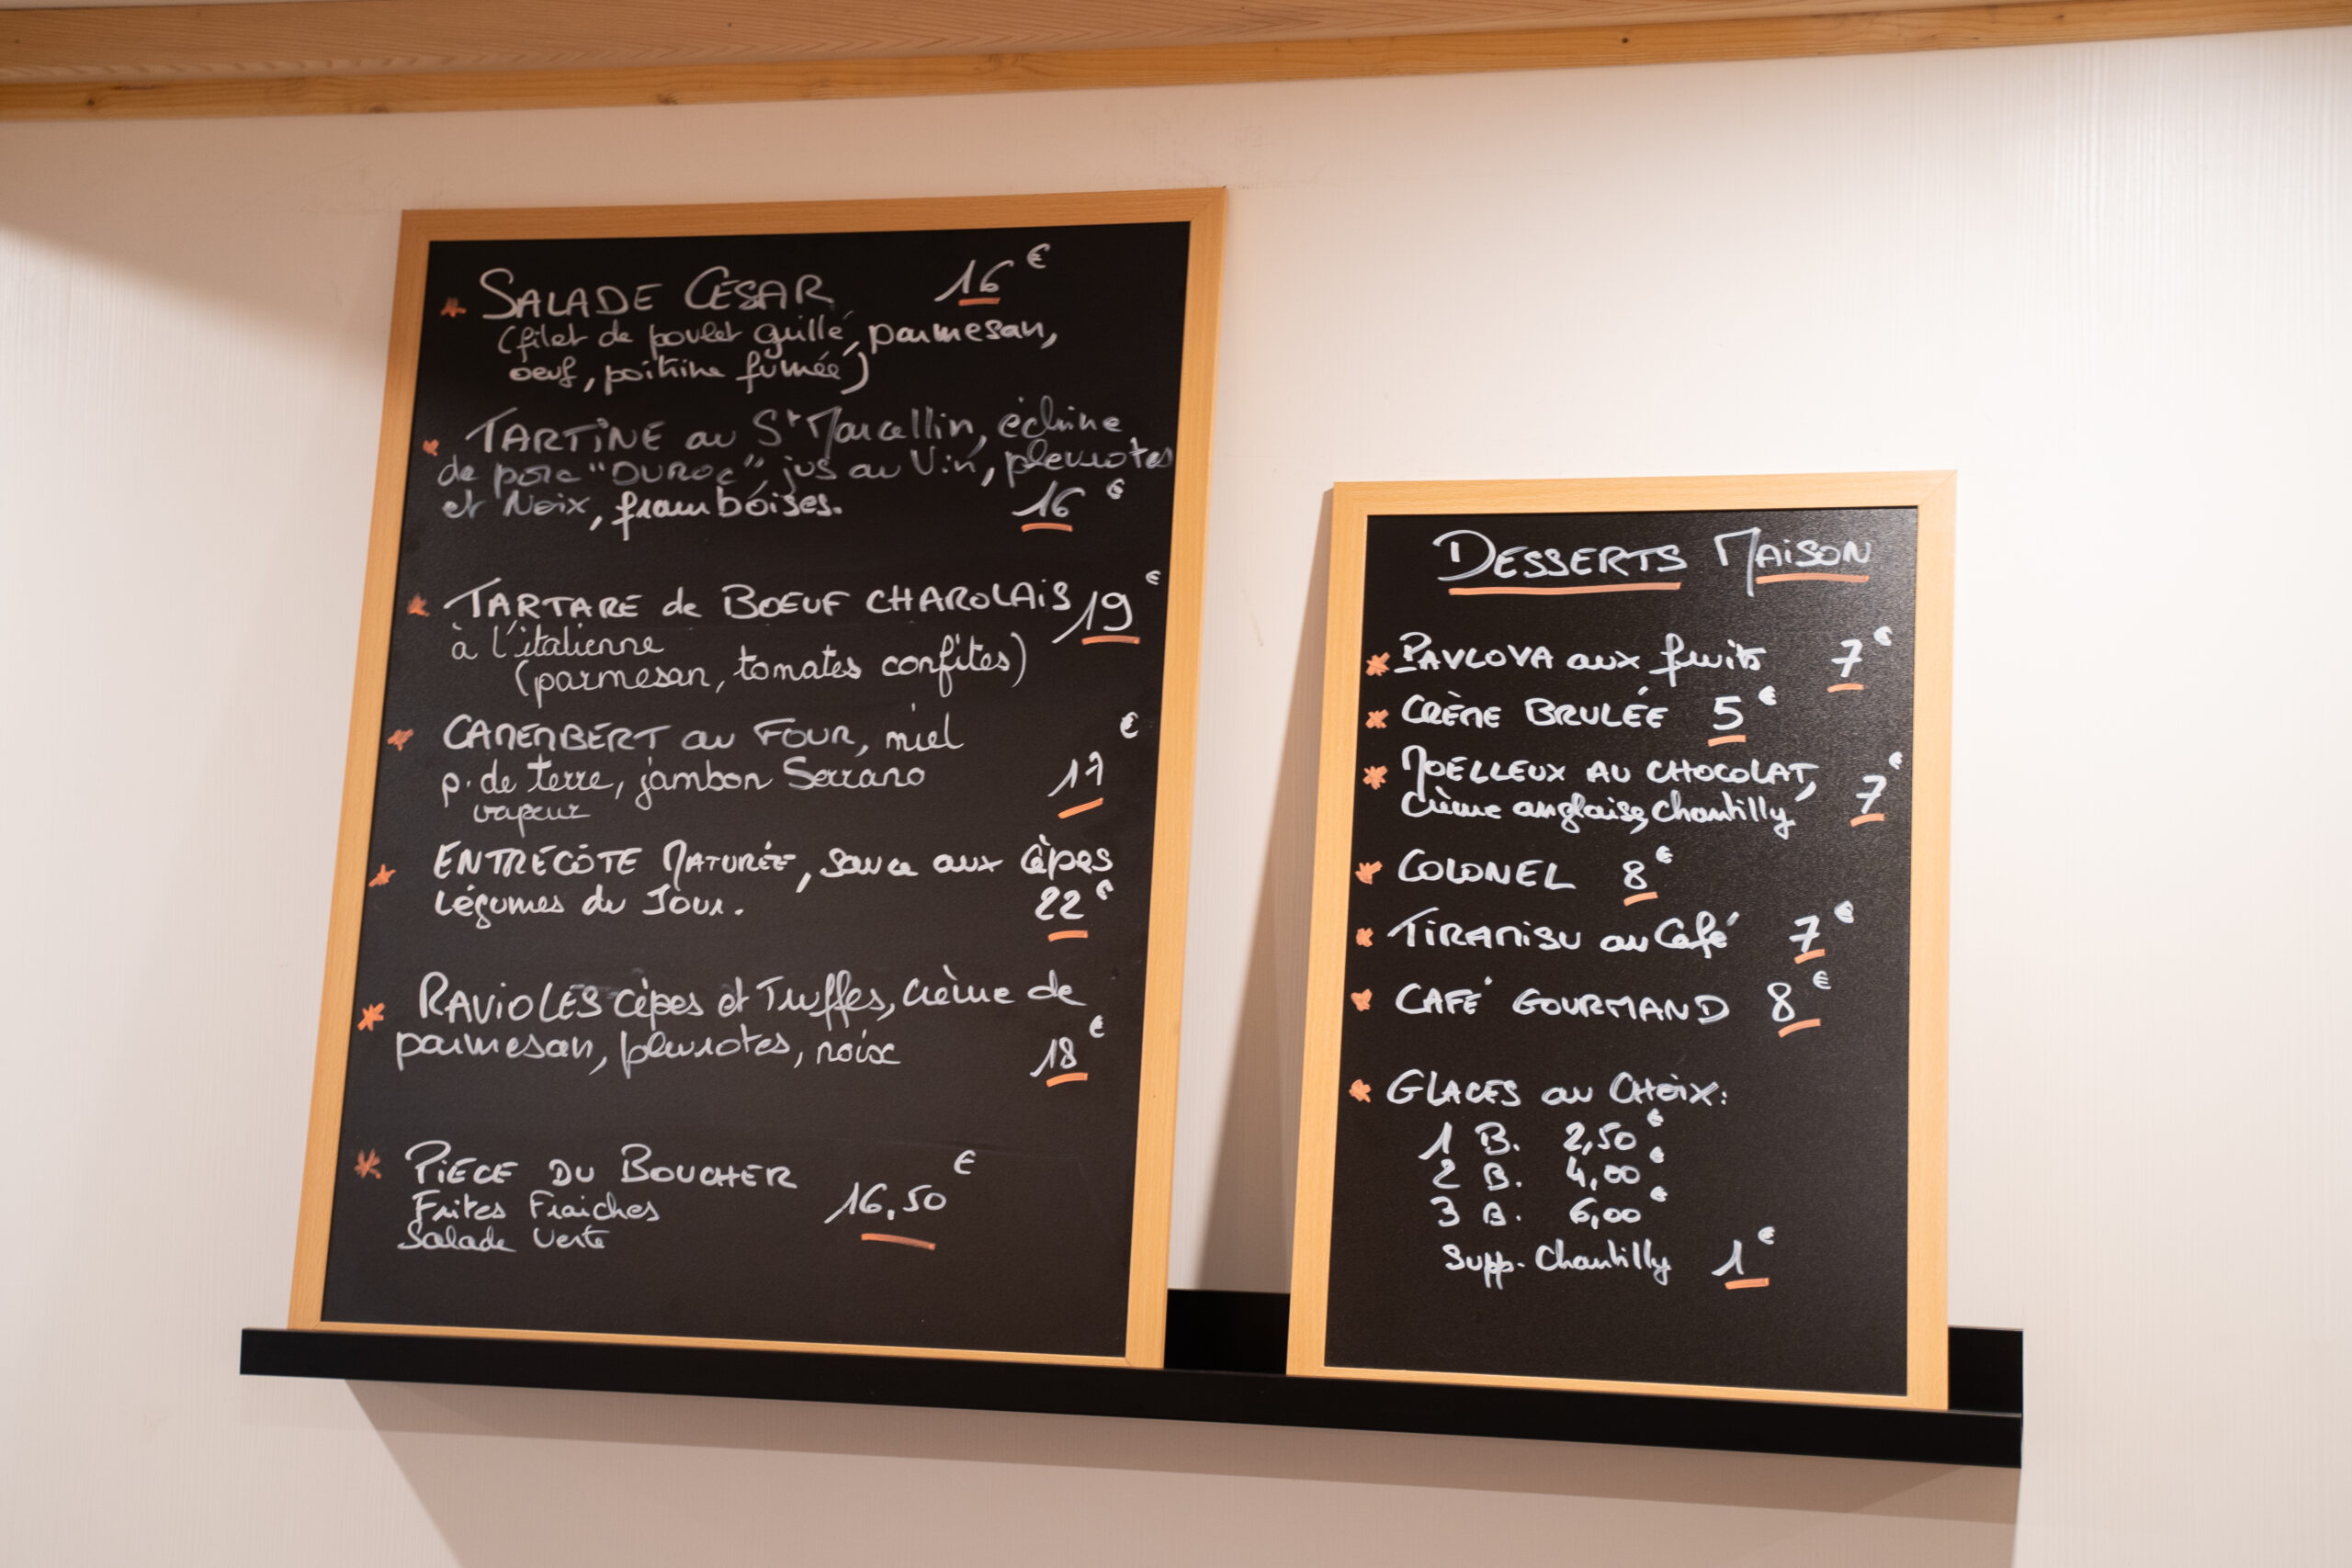 SALADE CÉSAR 16€
(filet de poulet grillé, parmesan,
oeuf, poitrine fumée)
TARTINE au St Marcellin, échine
de porc "DUROC", jus au Vin, pleurotes
et Noix, framboises. 16€
TARTARE de BOEUF CHAROLAIS 19€
à l'italienne
(parmesan, tomates confites)
CAMEMBERT au FOUR, miel €
p. de terre, jambon Serrano 17
vapeur
ENTRECÔTE MATURÉE, sauce aux Cèpes
Légumes du Jour. 22€
RAVIOLES cèpes et Truffes, crème de
parmesan, pleurotes, noix 18€
PIÈCE DU BOUCHER 16,50€
Frites Fraiches
Salade Verte
DESSERTS MAISON
PAVLOVA aux fruits 7€
CRÈME BRULÉE 5€
MOELLEUX AU CHOCOLAT, 7€
Crème anglaise, Chantilly
COLONEL 8€
TIRAMISU au Café 7€
CAFÉ GOURMAND 8€
GLACES au CHOIX:
1 B. 2,50€
2 B. 4,00€
3 B. 6,00€
Supp. Chantilly 1€